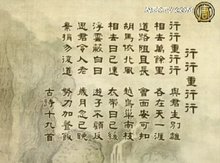 行行重行行
行行重行行 與君生別離
相去萬餘里 各在天一涯
道路阻且長 會面安可知
胡馬依北風 越鳥巢南枝
相去日已遠 衣帶日已緩
浮雲蔽白日 遊子不顧反
思君令人老 歲月忽已晚
棄捐勿復道 努力加餐飯
古詩十九首